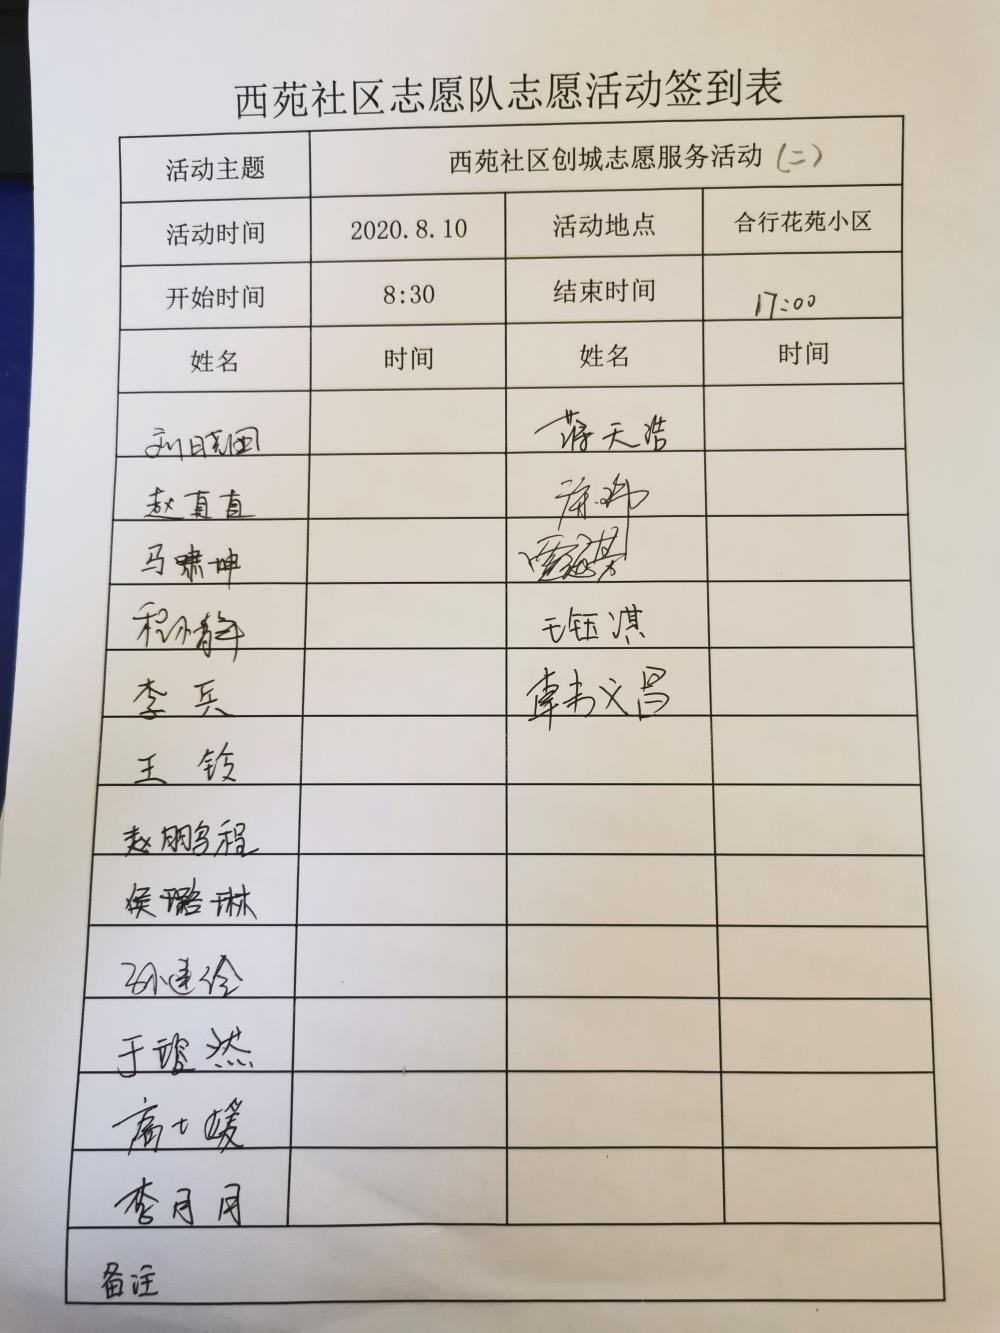 西苑社区志愿队志愿活动签到表
活动主题 西苑社区创城志愿服务活动(二)
活动时间 2020.8.10 活动地点 合行花苑小区
开始时间 8:30 结束时间 17:00
姓名 时间 姓名 时间
刘晓田 蒋天浩
赵真真
马啸坤
程静 王钰淇
李兵 韦文昌
王铃
赵鹏程
侯璐琳
孙建伶
于璇然
高士媛
李月月
备注